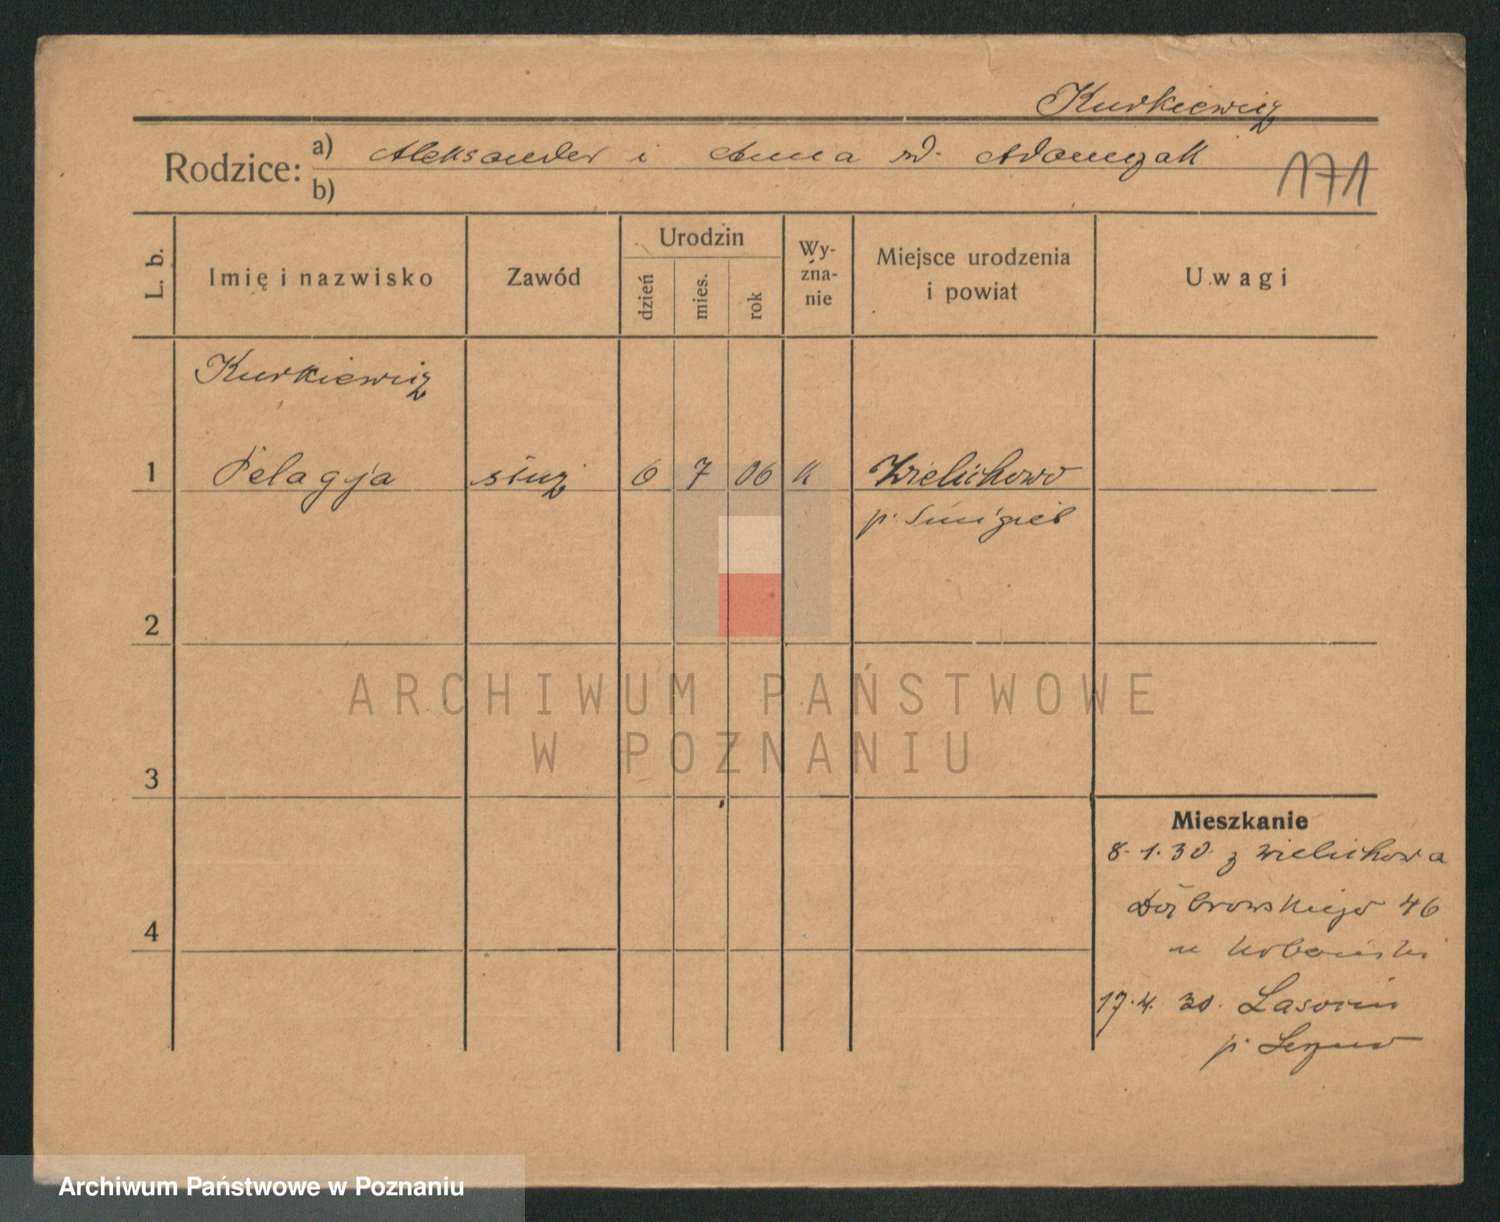 Kurkiewicz
Rodzice: a) Aleksander i Anna zd. Adamczak
b)
171
L. b.
Imię i nazwisko
Zawód
Urodzin
dzień
mies.
rok
Wy-
zna-
nie
Miejsce urodzenia
i powiat
Uwagi
Kurkiewicz
1 Pelagja służ 6 7 06 k Wielichowo
p. Śmigiel
2
ARCHIWUM PAŃSTWOWE
W POZNANIU
3
4
Mieszkanie
8.1.30 z Wielichowa
Dąbrowskiego 46
u Urbański
17.4.30.
p.
Archiwum Państwowe w Poznaniu